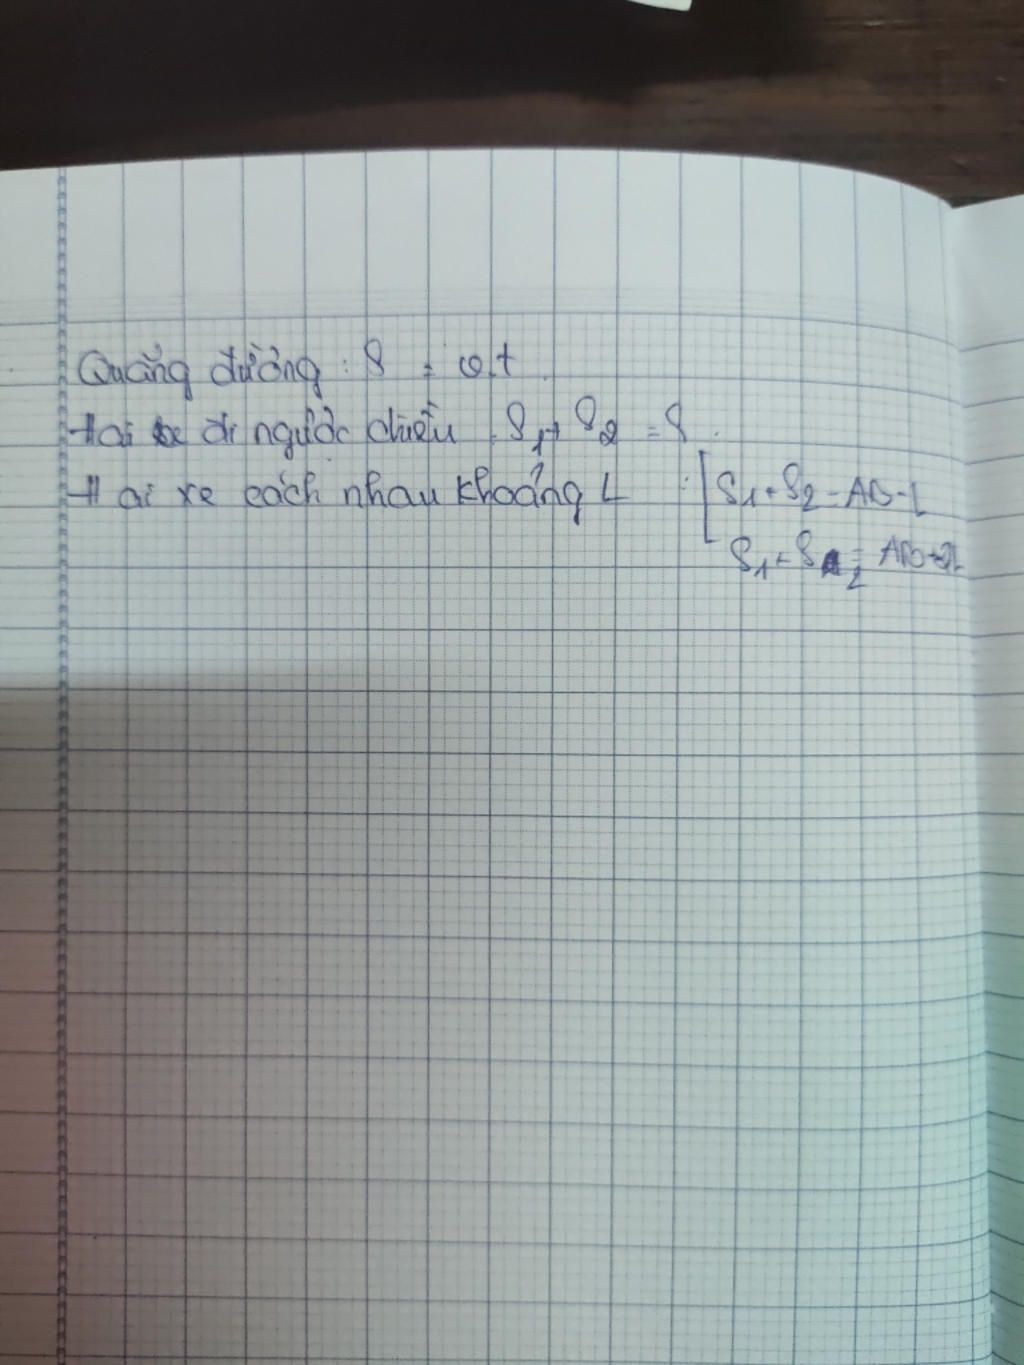 Quãng đường : S = v.t
Hai xe đi ngược chiều . S1 + S2 = S .
Hai xe cách nhau khoảng L : [ S1 + S2 = AB - L
S1 + S2 = AB + L